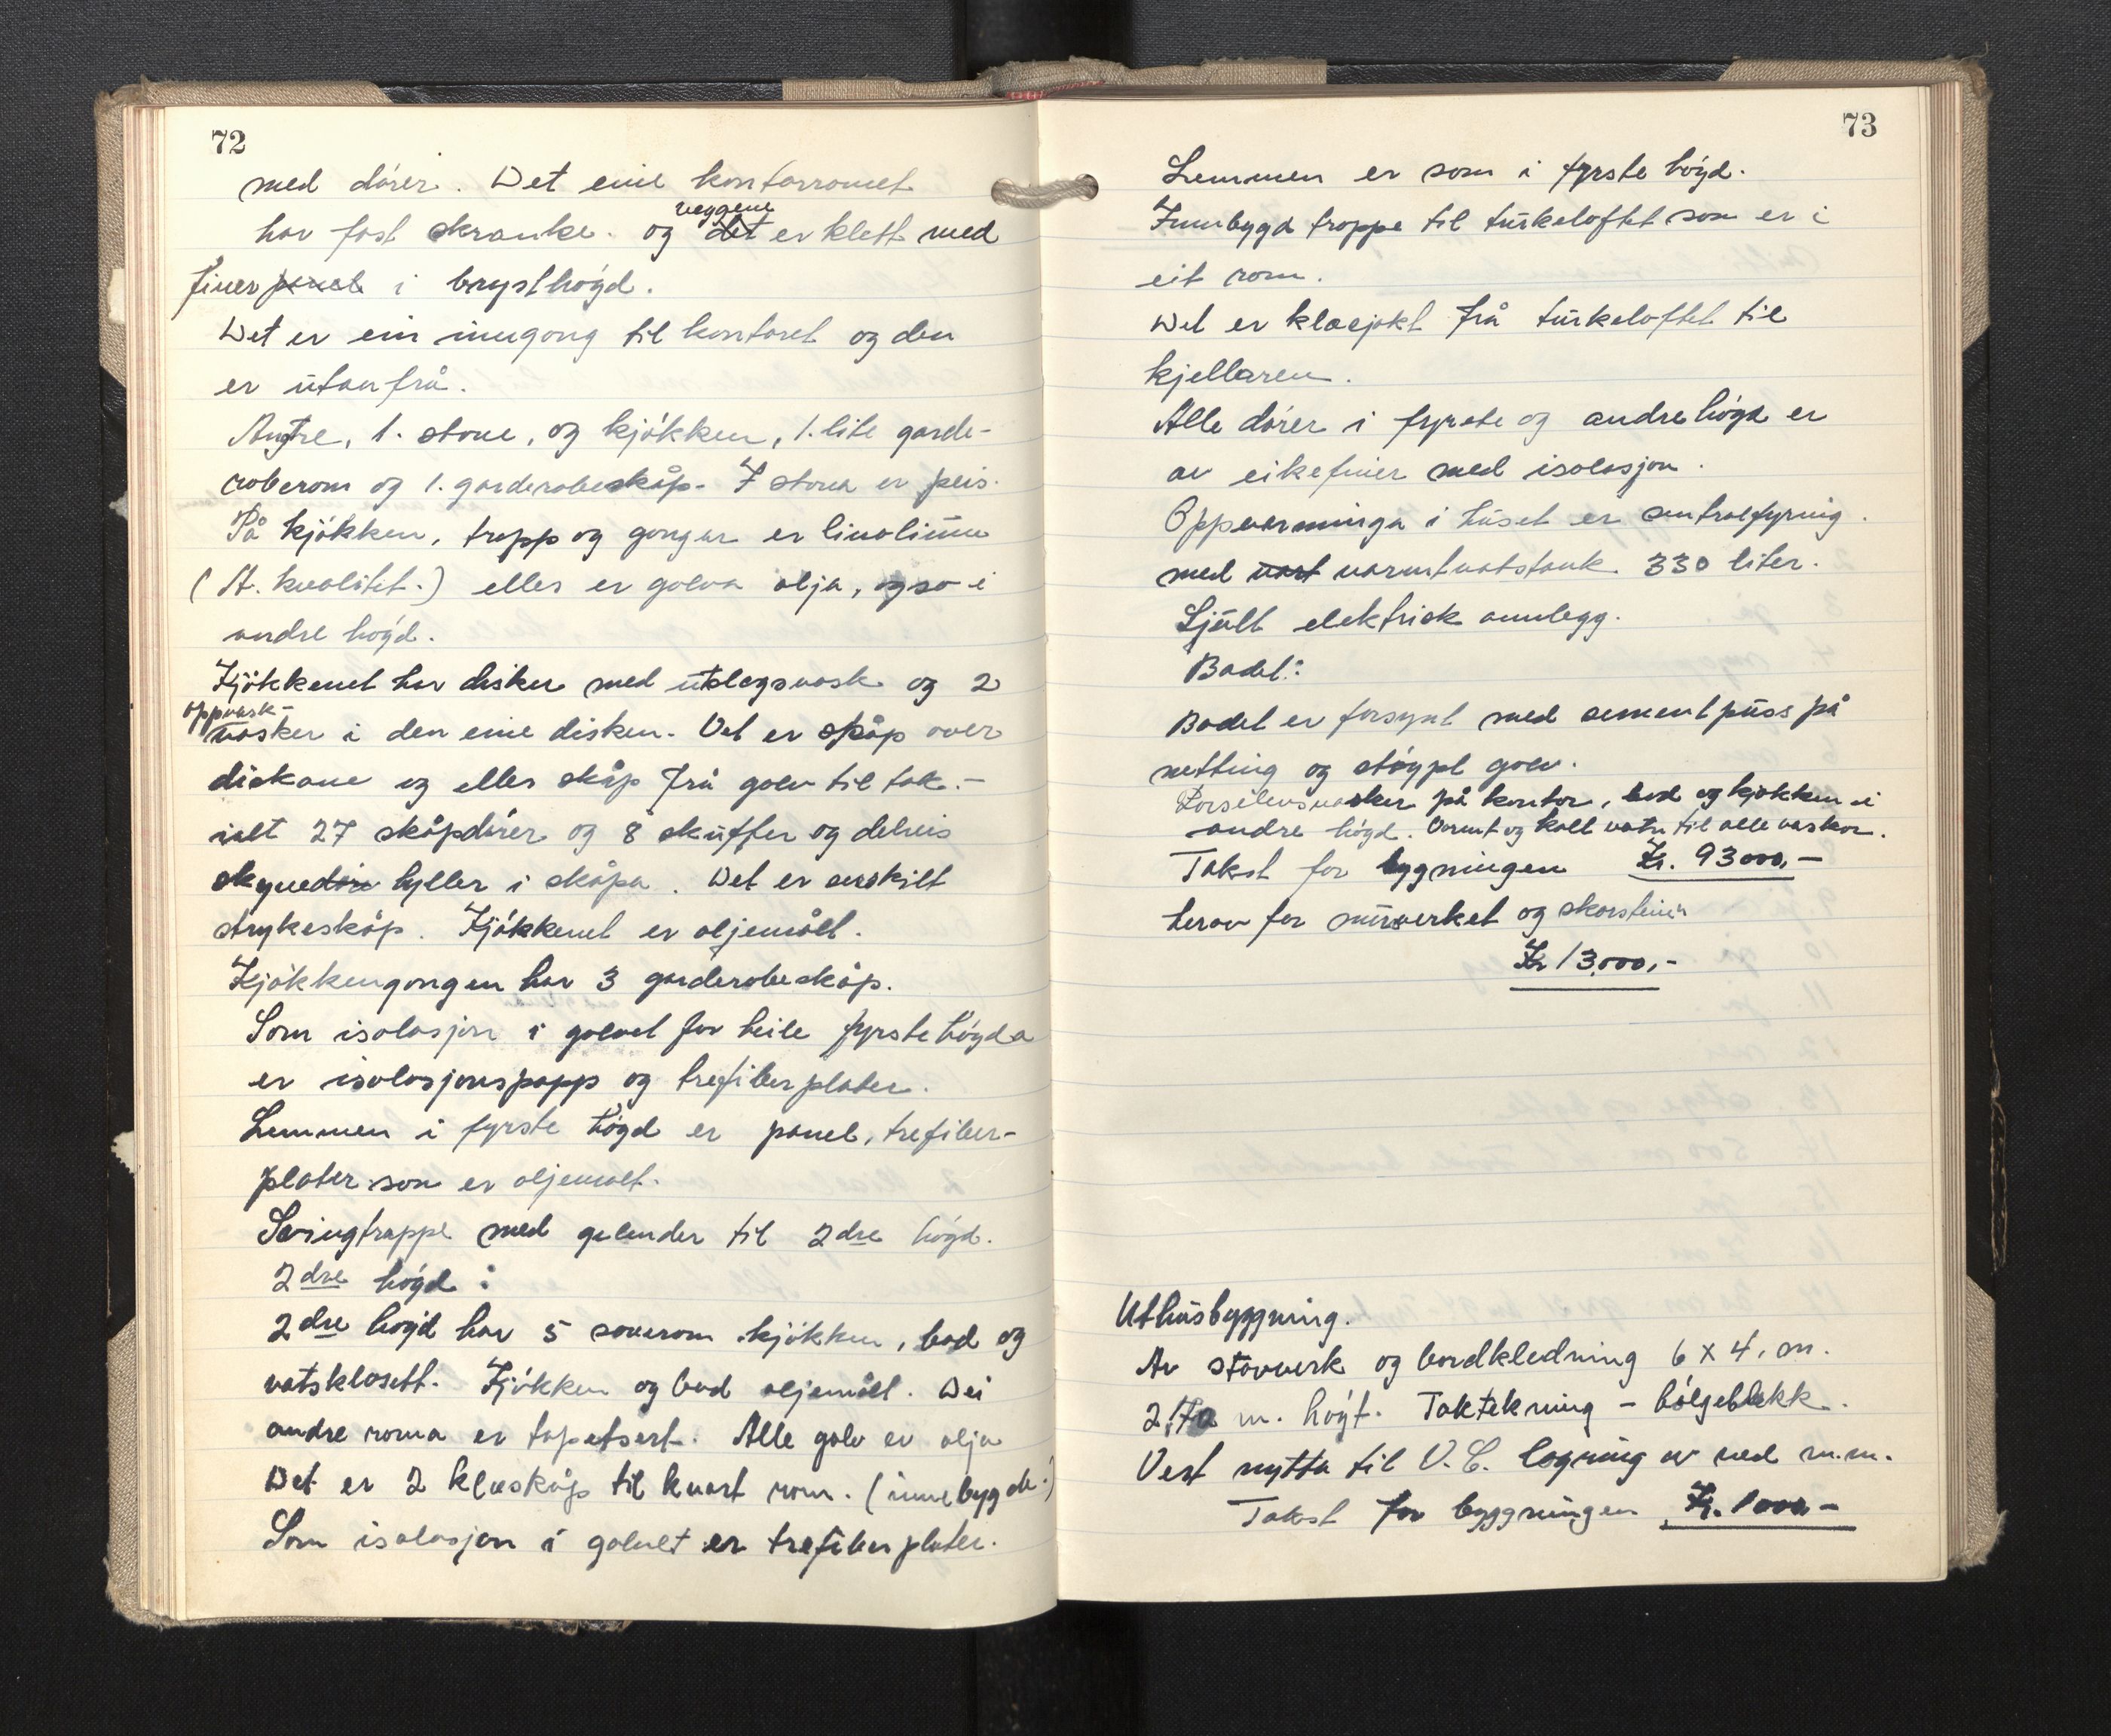 72
med dører. Det eine kontorromet
har fast skranke. og veggene er klett med
finer panel i brysthøgd.
Det er ein inngong til kontoret og den
er utanfrå.
Angtre, 1. stove, og kjøkken, 1. lite garde-
roberom og 1. garderobeskåp. I stova er peis.
På kjøkken, trapp og gongar er linolium
(A. kvalitet.) elles er golva olja, og so i
andre høgd.
Kjøkkenet har disker med utslagsvask og 2
oppvask-
vasker i den eine disken. Det er skåp over
diskane og elles skåp frå golv til tak. -
ialt 27 skåpdører og 8 skuffer og delvis
skyvedører hyller i skåpa. Det er serskilt
strykeskåp. Kjøkkenet er oljemålt.
Kjøkkengongen har 3 garderobeskåp.
Som isolasjon i golvet for heile fyrste høgda
er isolasjonspapp og trefiberplater.
Lemmen i fyrste høgd er panel, trefiber-
plater som er oljemalt.
Svingtrappe med gelender til 2dre høgd.
2dre høgd :
2dre høgd har 5 soverom kjøkken, bad og
vatsklosett. Kjøkken og bad oljemålt. Dei
andre roma er tapetsert. Alle golv er olja
Det er 2 kleskåp til kvart rom. (innebygde.)
Som isolasjon i golvet er trefiberplater.
73
Lemmen er som i fyrste høgd.
Innbygd trappe til turkeloftet som er i
eit rom.
Det er klæsjakt frå turkeloftet til
kjellaren.
Alle dører i fyrste og andre høgd er
av eikefiner med isolasjon.
Oppvarminga i huset er sentralfyring.
med vart varmtvatstank. 330 liter.
Skjult elektrisk annlegg.
Badet:
Badet er forsynt med sementpuss på
netting og støypt golv.
Porselensvasker på kontor, bad og kjøkken i
andre høgd. Varmt og kalt vatn til alle vasker.
Takst for bygningen Kr. 93000,-
herav for murverket og skorsteinin
Kr 13.000,-
Uthusbyggning.
Av stavverk og bordkledning 6 x 4, m.
2.70 m. høgt. Taktekning - bølgeblekk.
Vert nytta til V.C. lagring av ved m.m.
Takst for byggningen Kr. 1000-